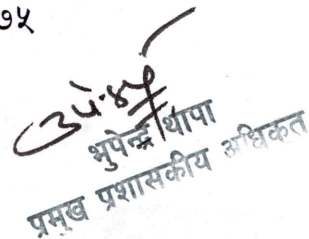 ७५
भुपेन्द्र थापा
प्रमुख प्रशासकीय अधिकृत